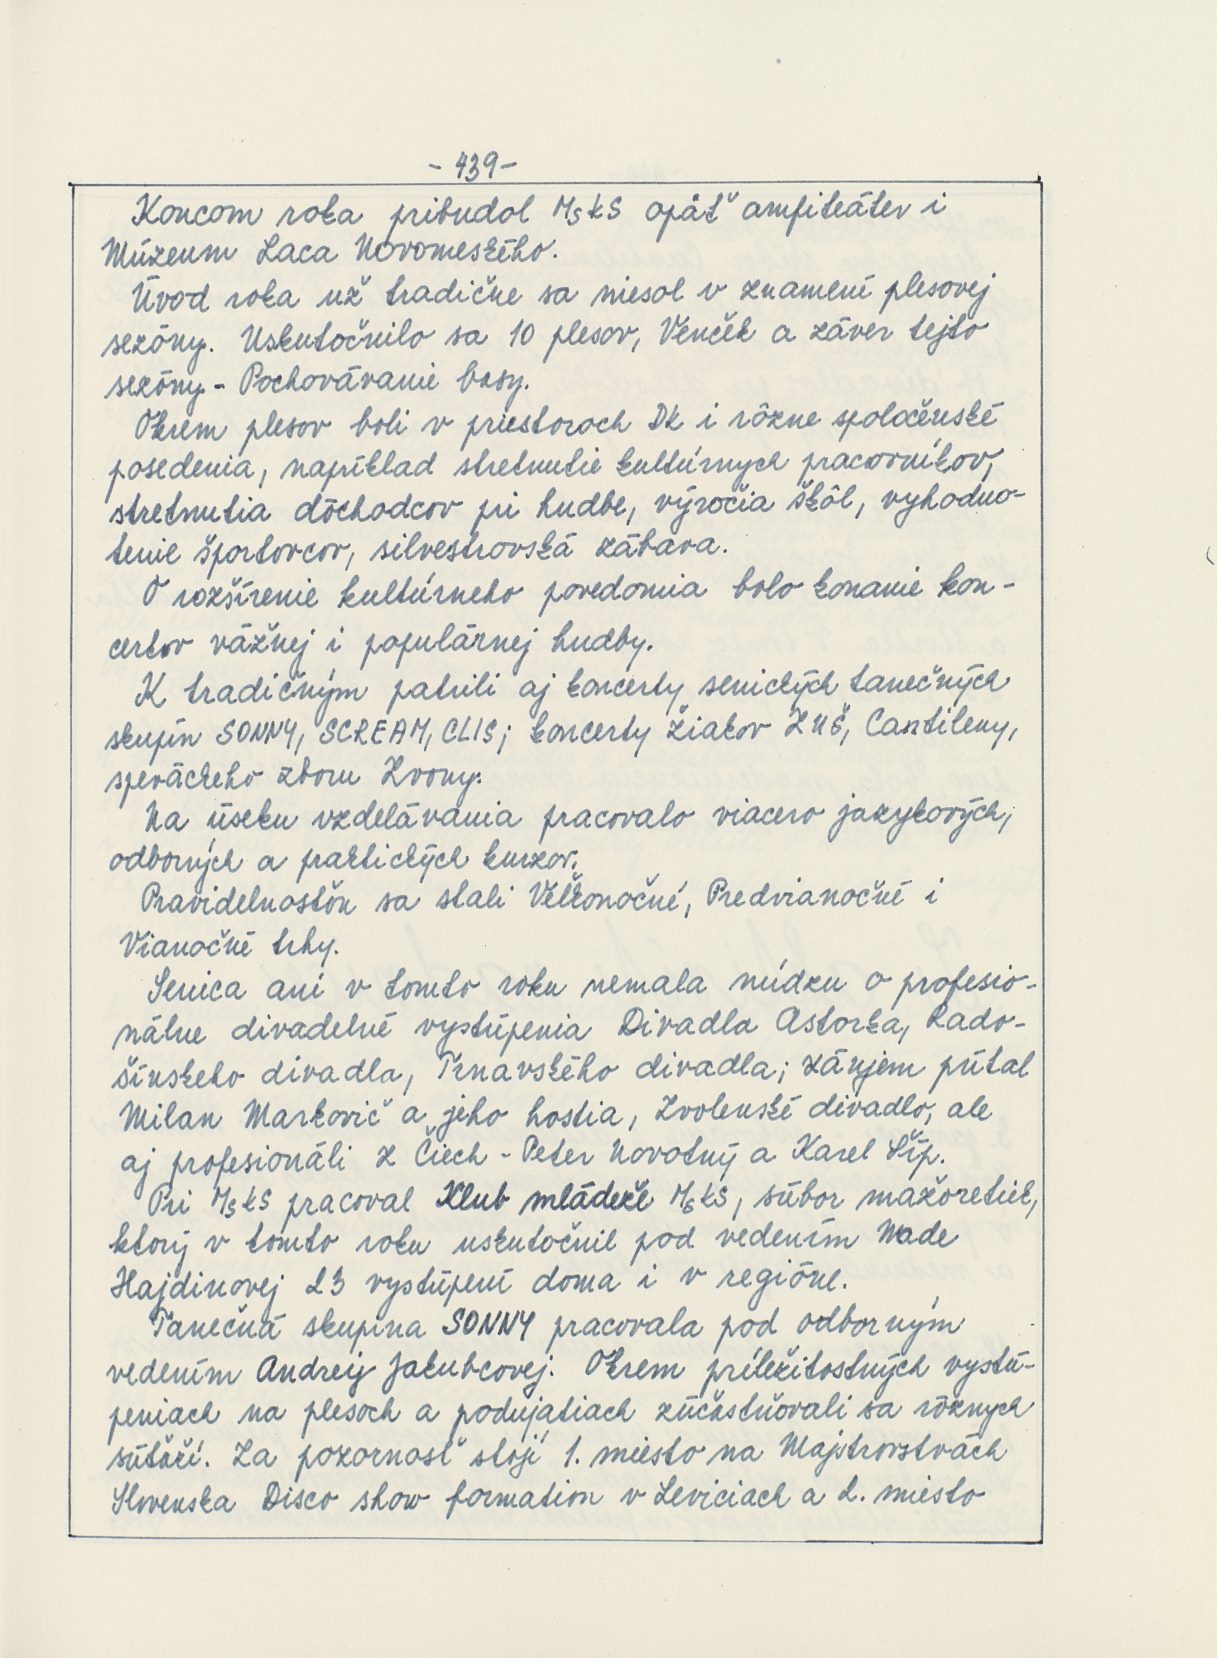 - 439 -
Koncom roka pribudol MsKS opäť amfiteáter i
Múzeum Laca Novomeského.
Úvod roka už tradične sa niesol v znamení plesovej
sezóny. Uskutočnilo sa 10 plesov, Venček a záver tejto
sezóny - Pochovávanie basy.
Okrem plesov boli v priestoroch DK i rôzne spoločenské
posedenia, napríklad stretnutie kultúrnych pracovníkov,
stretnutia dôchodcov pri hudbe, výročia škôl, vyhodno-
tenie športovcov, silvestrovská zábava.
O rozšírenie kultúrneho povedomia bolo konanie kon-
certov vážnej i populárnej hudby.
K tradičným patrili aj koncerty senických tanečných
skupín SONNY, SCREAM, CLIS; koncerty žiakov ZUŠ, Cantileny,
speváckeho zboru Zvony.
Na úseku vzdelávania pracovalo viacero jazykových,
odborných a praktických kurzov.
Pravidelnosťou sa stali Veľkonočné, Predvianočné i
Vianočné trhy.
Senica ani v tomto roku nemala núdzu o profesio-
nálne divadelné vystúpenia Divadla Astorka, Rado-
šinského divadla, Trnavského divadla; záujem pútal
Milan Markovič a jeho hostia, Zvolenské divadlo, ale
aj profesionáli z Čiech - Peter Novotný a Karel Šíp.
Pri MsKS pracoval Klub mládeže MsKS, súbor mažoretiek,
ktorý v tomto roku uskutočnil pod vedením Nade
Hajdinovej 23 vystúpení doma i v regióne.
Tanečná skupina SONNY pracovala pod odborným
vedením Andrey Jakubcovej. Okrem príležitostných vystú-
peniach na plesoch a podujatiach zúčastňovali sa rôznych
súťaží. Za pozornosť stojí 1. miesto na Majstrovstvách
Slovenska Disco show formation v Leviciach a 2. miesto